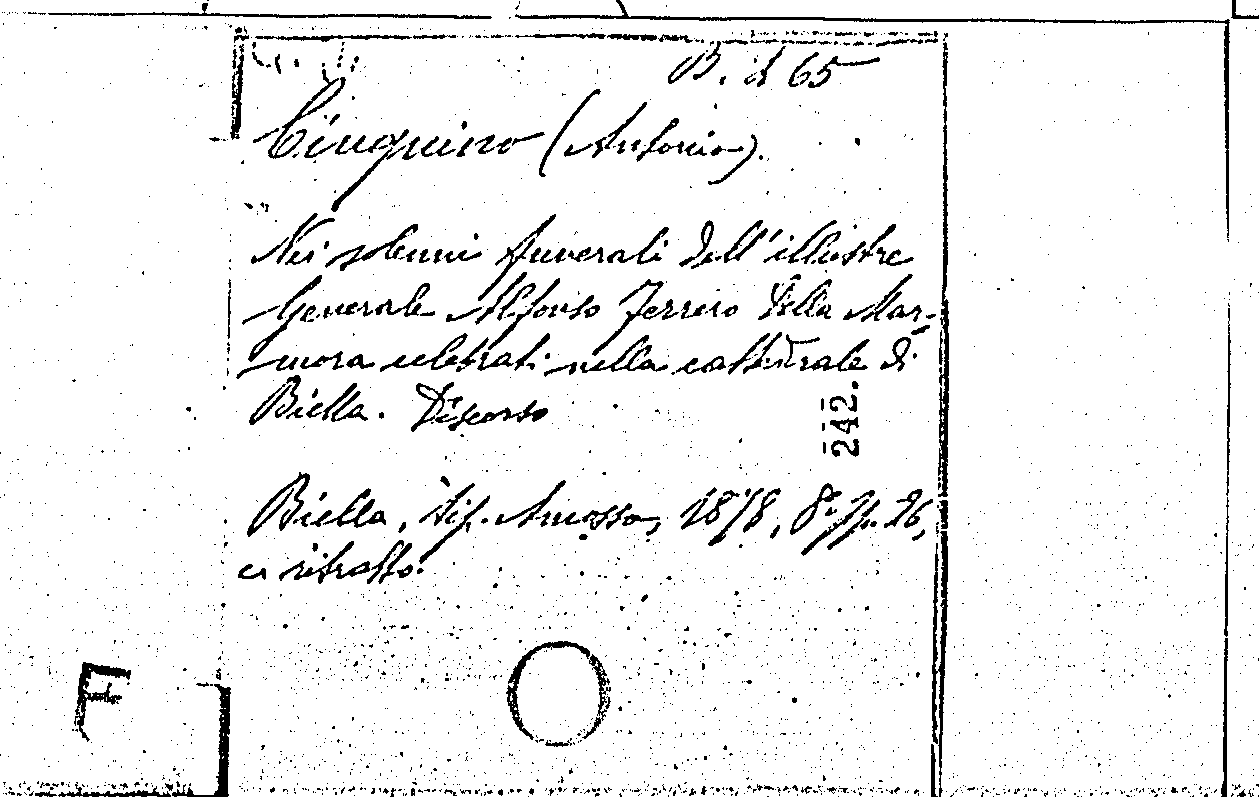 B. d 65
Cinquino (Antonio).
Nei solenni funerali dell'illustre
Generale Alfonso Ferrero Della Mar-
mora celebrati nella cattedrale di
Biella. Discorso
242.
Biella, tip. Amosso, 1878, 8º, pp. 26,
c. ritratto.
F